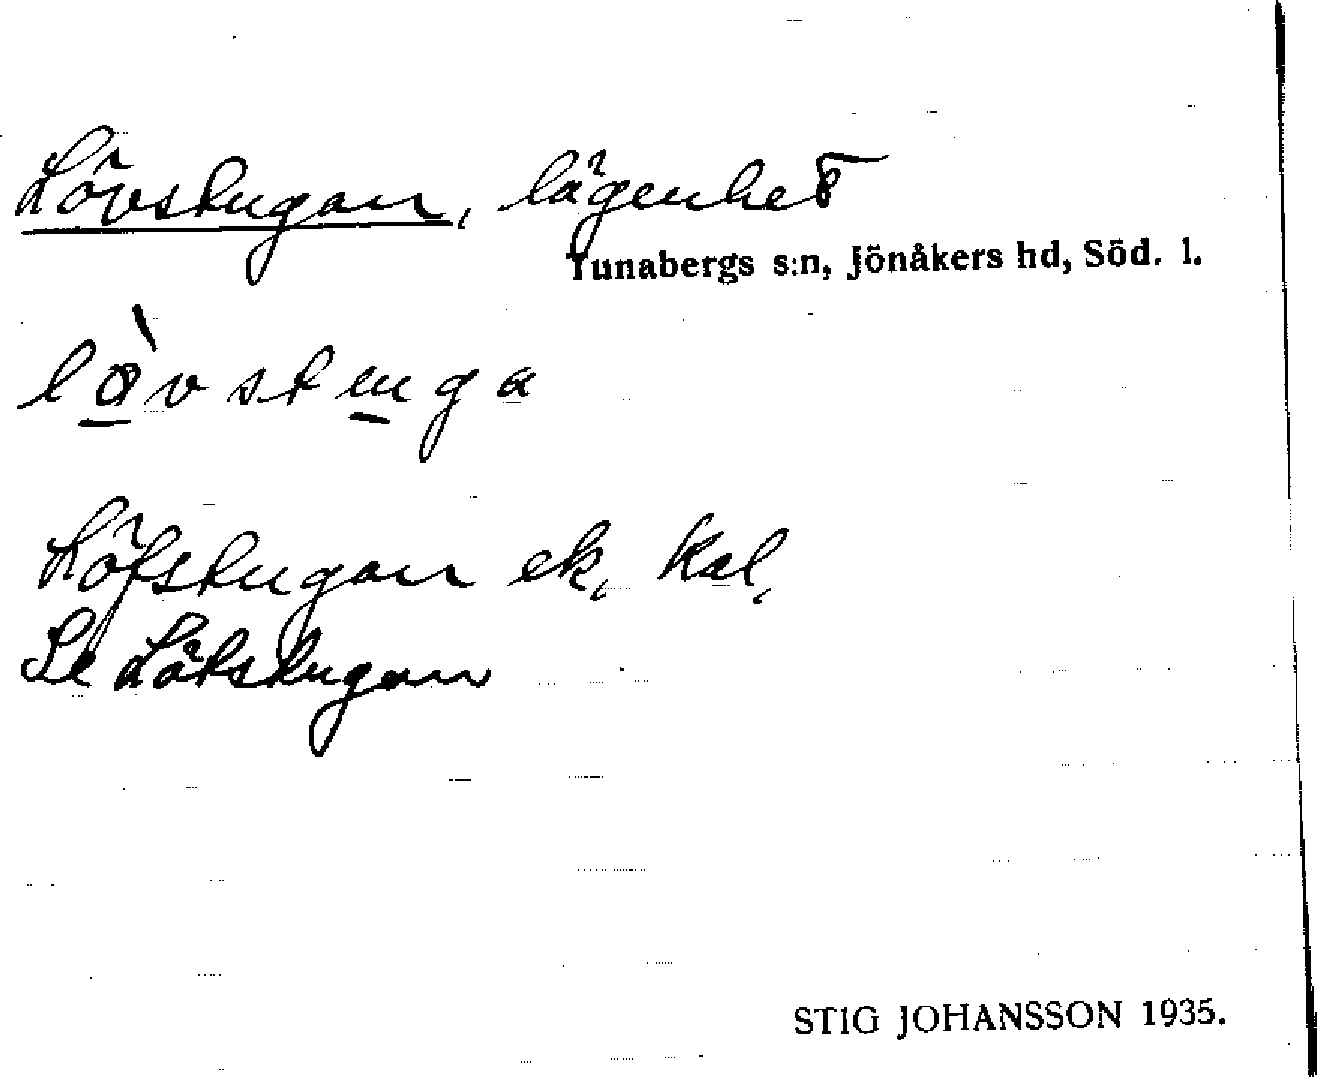 Lövstugan, lägenhet
Tunabergs s:n, Jönåkers hd, Söd. l.
lö̀vstuga
Löfstugan ek. kal.
Se Lötstugan
STIG JOHANSSON 1935.